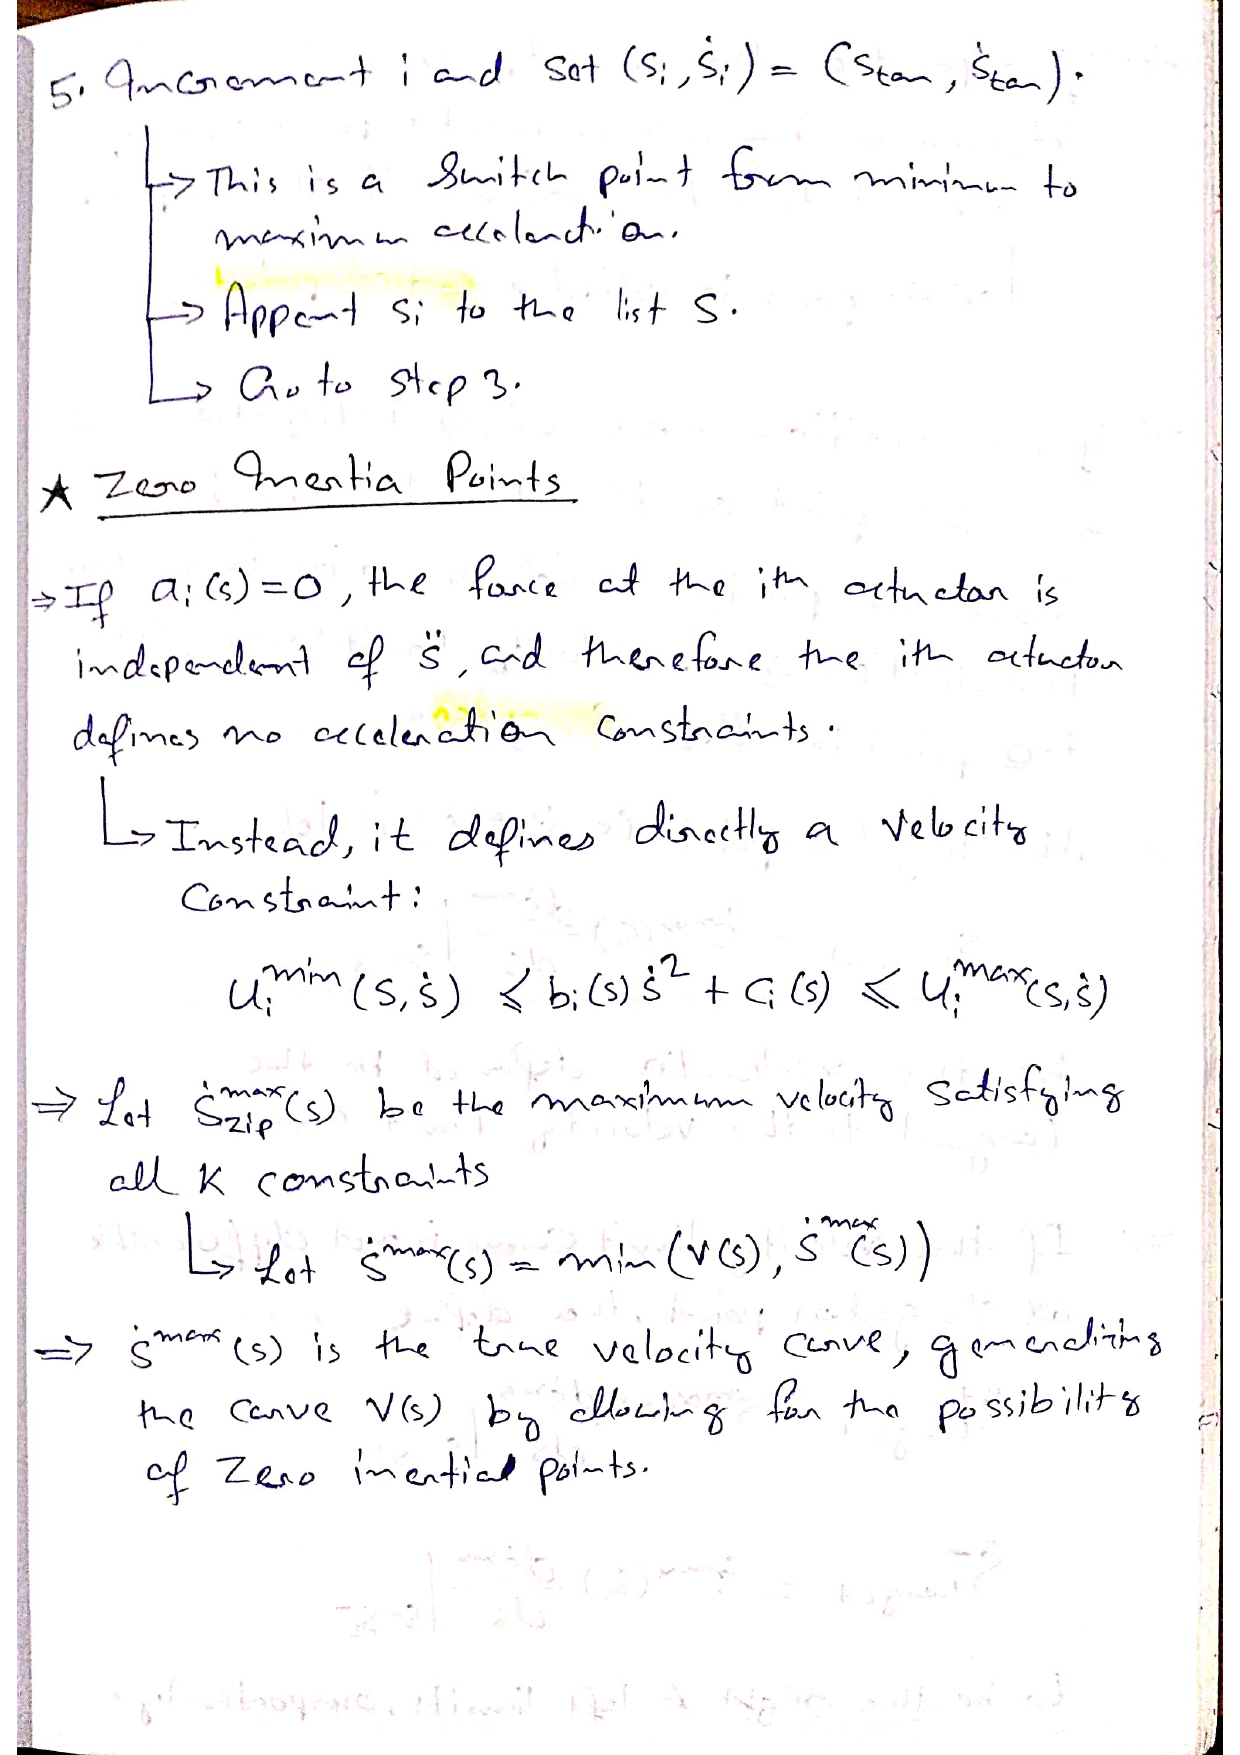 5. Increment i and set (sᵢ, ṡᵢ) = (s_tan, ṡ_tan).
→ This is a switch point from minimum to
maximum acceleration.
→ Append sᵢ to the list S.
→ Go to step 3.
★ Zero Inertia Points
⇒ If aᵢ(s) = 0, the force at the ith actuator is
independent of s̈, and therefore the ith actuator
defines no acceleration constraints.
↳ Instead, it defines directly a velocity
constraint:
uᵢ^min (s, ṡ) ≤ bᵢ(s) ṡ² + cᵢ(s) ≤ uᵢ^max (s, ṡ)
⇒ Let ṡ_zip^max (s) be the maximum velocity satisfying
all K constraints
↳ Let ṡ^max (s) = min (V(s), ṡ^max (s))
⇒ ṡ^max (s) is the true velocity curve, generalizing
the curve V(s) by allowing for the possibility
of zero inertial points.